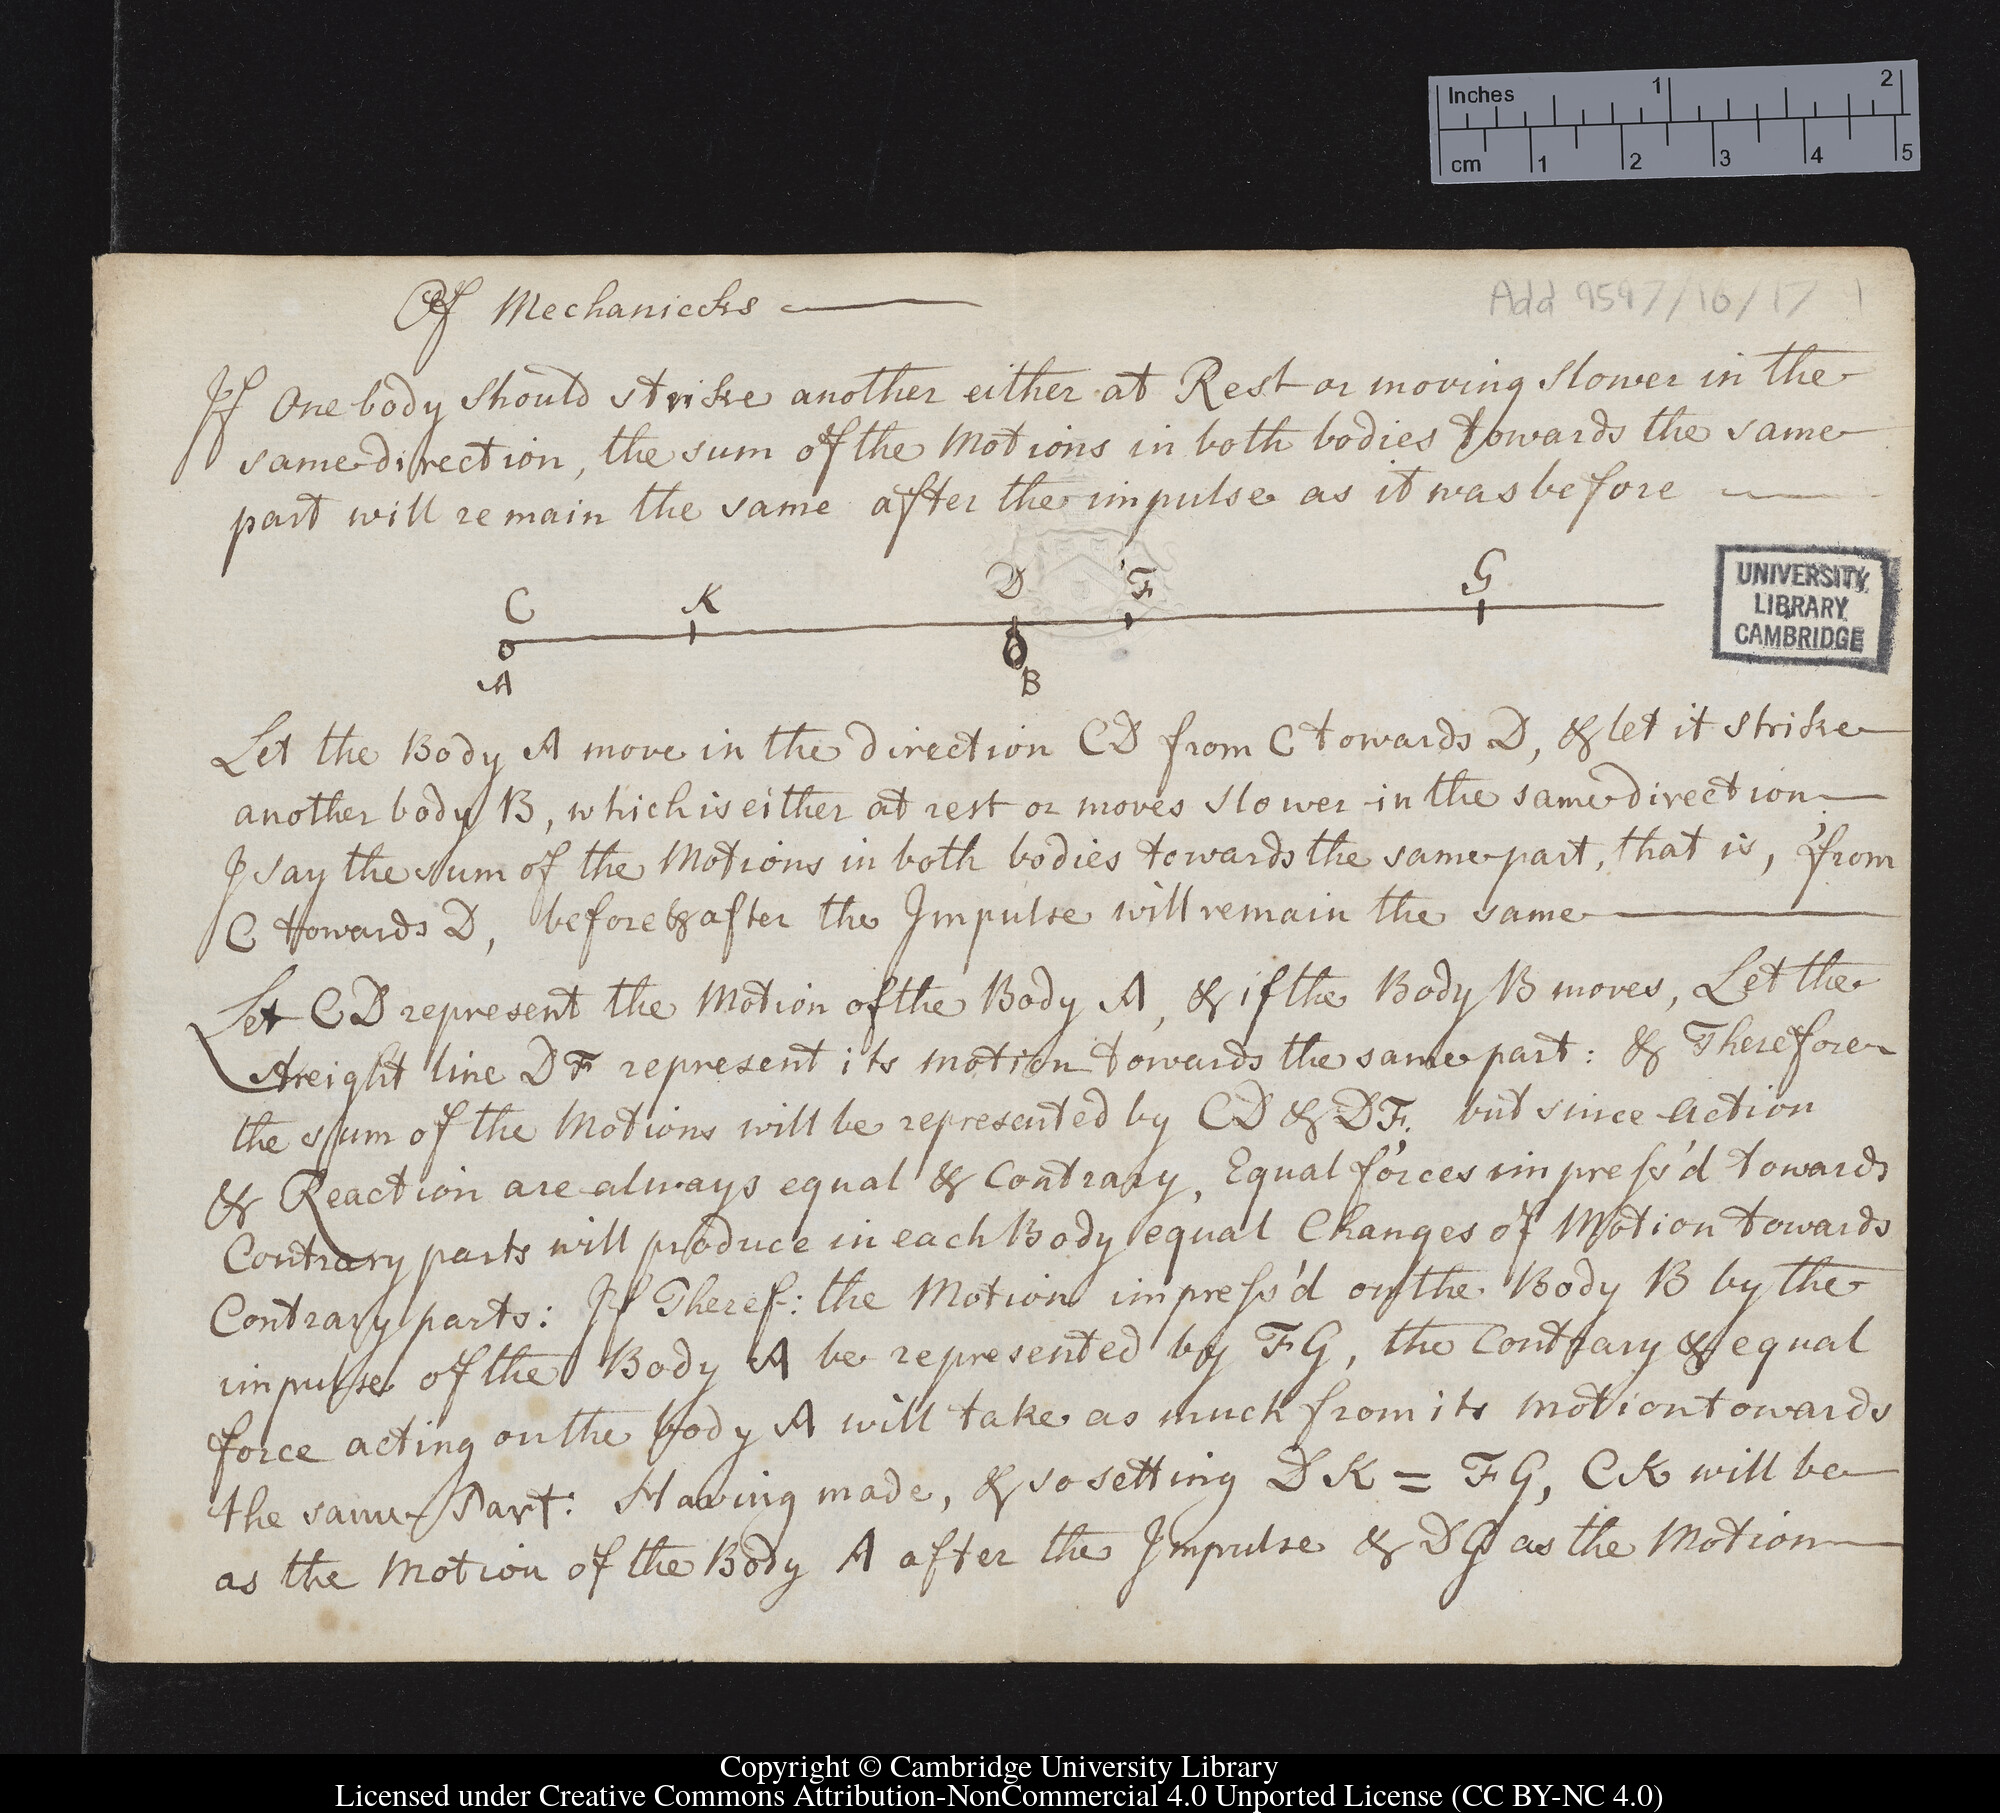 Inches 1 2
cm 1 2 3 4 5
Of Mechanicks
Add 9597/16/17 1
If One body should strike another either at Rest or moving slower in the
same direction, the sum of the Motions in both bodies towards the same
part will remain the same after the impulse as it was before
C K D F G
A B
UNIVERSITY
LIBRARY
CAMBRIDGE
Let the Body A move in the direction CD from C towards D, & let it strike
another body B, which is either at rest or moves slower in the same direction
I say the sum of the Motions in both bodies towards the same part, that is, from
C towards D, before & after the Impulse will remain the same
Let CD represent the Motion of the Body A, & if the Body B moves, Let the
streight line DF represent its motion towards the same part: & Therefore
the sum of the Motions will be represented by CD & DF. but since Action
& Reaction are always equal & Contrary, Equal forces impress'd towards
Contrary parts will produce in each Body equal Changes of Motion towards
Contrary parts: If Theref: the Motion impress'd on the Body B by the
impulse of the Body A be represented by FG, the Contrary & equal
force acting on the body A will take as much from its motion towards
the same Part: Having made, & so setting DK = FG, CK will be
as the Motion of the Body A after the Impulse & DG as the Motion
Copyright © Cambridge University Library
Licensed under Creative Commons Attribution-NonCommercial 4.0 Unported License (CC BY-NC 4.0)